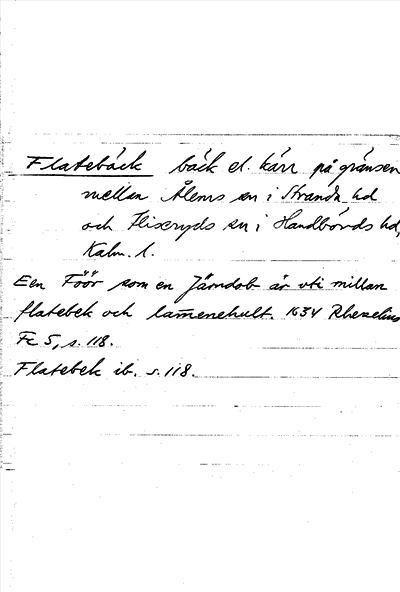 Flatebäck bäck el. kärr på gränsen
mellan Ålems sn i Stranda hd
och Fliseryds sn i Handbörds hd,
Kalm. l.
Een Föör som en Järndob är uti millan
flatebek och lamenehult. 1634 Rhezelius
Fc 5, s. 118.
Flatebek ib. s. 118.